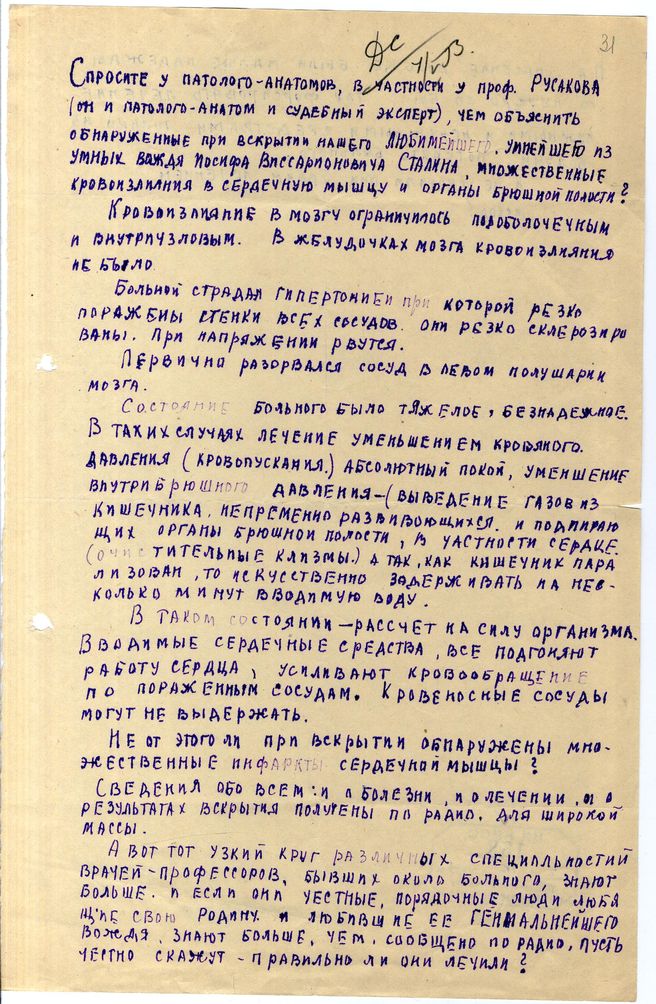 31
ДС
Спросите у патолого-анатомов, в частности у проф. Русакова
(он и патолого-анатом и судебный эксперт), чем объяснить
обнаруженные при вскрытии нашего любимейшего, умнейшего из
умных вождя Иосифа Виссарионовича Сталина, множественные
кровоизлияния в сердечную мышцу и органы брюшной полости?
Кровоизлияние в мозгу ограничилось подоболочечным
и внутриузловым. В желудочках мозга кровоизлияния
не было.
Больной страдал гипертонией при которой резко
поражены стенки всех сосудов. Они резко склерозиро
ваны. При напряжении рвутся.
Первично разорвался сосуд в левом полушарии
мозга.
Состояние больного было тяжелое, безнадежное.
В таких случаях лечение уменьшением кровяного.
давления (кровопускания.) абсолютный покой, уменьшение
внутрибрюшного давления – (выведение газов из
кишечника, непременно развивающихся. и подпираю
щих органы брюшной полости, в частности сердце.
(очистительные клизмы.) а так, как кишечник пара
лизован, то искусственно задерживать на нес-
колько минут вводимую воду.
В таком состоянии – рассчет на силу организма.
Вводимые сердечные средства, все подгоняют
работу сердца, усиливают кровообращение
по пораженным сосудам. Кровеносные сосуды
могут не выдержать.
Не от этого ли при вскрытии обнаружены мно-
жественные инфаркты сердечной мышцы?
Сведения обо всем: и о болезни, и о лечении, и о
результатах вскрытия получены по радио. для широкой
массы.
А вот тот узкий круг различных специальностий
врачей-профессоров, бывших около больного, знают
больше. и если они честные, порядочные люди любя
щие свою родину и любившие ее гениальнейшего
вождя, знают больше, чем, сообщено по радио, пусть
честно скажут – правильно ли они лечили?